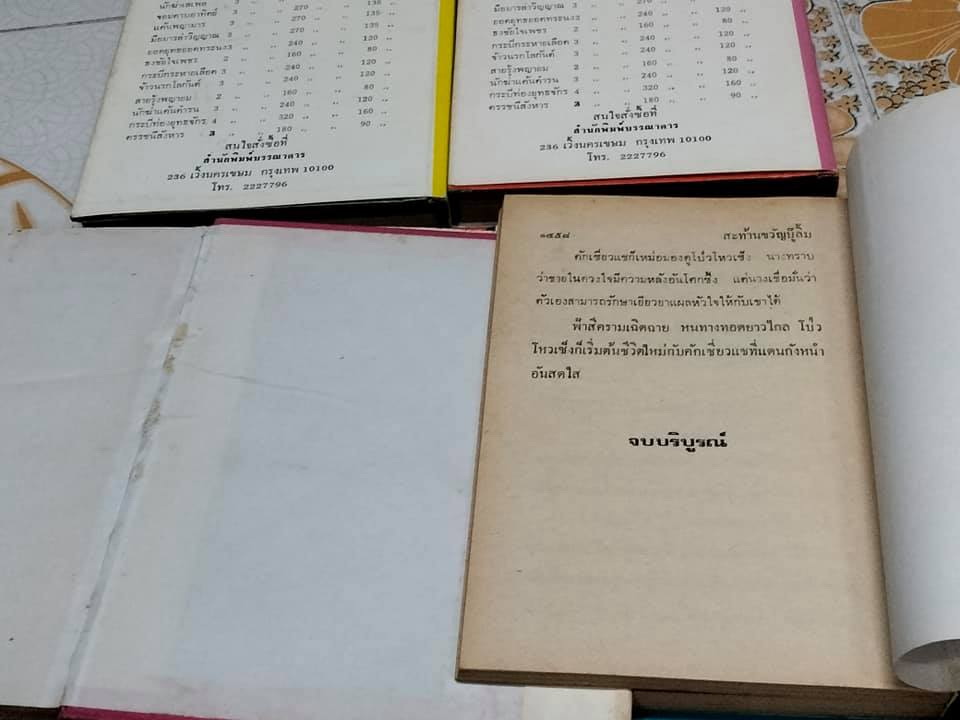 ขอมดาบอาทิตย์ 3 ,, ,, 270 ,, 135 ,,
แค้นพญามาร 3 ,, ,, 270 ,, 135 ,,
มือมารล่าวิญญาณ 3 ,, ,, 270 ,, 135 ,,
ยอดยุทธยอดทระนง 3 ,, ,, 240 ,, 120 ,,
ธงชัยใจเพชร 2 ,, ,, 160 ,, 80 ,,
กระบี่กระหายเลือด 3 ,, ,, 240 ,, 120 ,,
จ้าวนรกโลกันต์ 3 ,, ,, 240 ,, 120 ,,
สายรุ้งพญายม 2 ,, ,, 160 ,, 80 ,,
นักฆ่าแค้นคำรน 3 ,, ,, 240 ,, 120 ,,
กระบี่ท่องยุทธจักร 4 ,, ,, 320 ,, 160 ,,
ดรรชนีสังหาร 3 ,, ,, 180 ,, 90 ,,
สนใจสั่งซื้อที่
สำนักพิมพ์บรรณาคาร
236 เวิ้งนครเขษม กรุงเทพ 10100
โทร. 2227796
มือมารล่าวิญญาณ 3 ,, ,, 270 ,, 135 ,,
ยอดยุทธยอดทระนง 3 ,, ,, 240 ,, 120 ,,
ธงชัยใจเพชร 2 ,, ,, 160 ,, 80 ,,
กระบี่กระหายเลือด 3 ,, ,, 240 ,, 120 ,,
จ้าวนรกโลกันต์ 3 ,, ,, 240 ,, 120 ,,
สายรุ้งพญายม 2 ,, ,, 160 ,, 80 ,,
นักฆ่าแค้นคำรน 3 ,, ,, 240 ,, 120 ,,
กระบี่ท่องยุทธจักร 4 ,, ,, 320 ,, 160 ,,
ดรรชนีสังหาร 3 ,, ,, 180 ,, 90 ,,
สนใจสั่งซื้อที่
สำนักพิมพ์บรรณาคาร
236 เวิ้งนครเขษม กรุงเทพ 10100
โทร. 2227796
๑๔๕๘ สะท้านขวัญบู๊ลิ้ม
คักเชี่ยวแชก็เหม่อมองดูโป้วโหวเช็ง นางทราบ
ว่าชายในดวงใจมีความหลังอันโศกซึ้ง แต่นางเชื่อมั่นว่า
ตัวเองสามารถรักษาเยียวยาแผลหัวใจให้กับเขาได้
ฟ้าสีครามเฉิดฉาย หนทางทอดยาวไกล โป้ว
โหวเช็งก็เริ่มต้นชีวิตใหม่กับคักเชี่ยวแชที่แดนกังหนำ
อันสดใส
จบบริบูรณ์